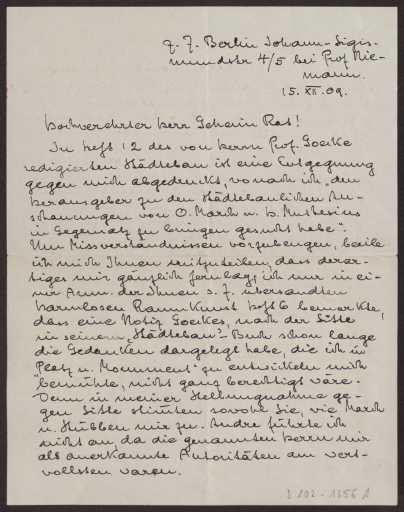 z. Z. Berlin Johann-Sigis-
mundstr 4/5 bei Prof Nie-
mann.
15. XII. 09.
Hochverehrter Herr Geheim Rat!
In Heft 12 des von Herrn Prof. Goecke
redigierten Städtebau ist eine Entgegnung
gegen mich abgedruckt, wonach ich „den
Herausgeber zu den städtebaulichen An-
schauungen von O. March u. H. Muthesius
in Gegensatz zu bringen gesucht habe".
Um Missverständnissen vorzubeugen, beeile
ich mich Ihnen mitzuteilen, dass derar-
tiges mir gänzlich fernlag, ich nur in ei-
ner Anm. der Ihnen s. Z. übersandten
harmlosen Raumkunst Heft 6 bemerkte,
dass eine Notiz Goeckes, nach der Sitte
in seinem „Städtebau"-Buch schon lange
die Gedanken dargelegt habe, die ich in
„Platz u. Monument" zu entwickeln mich
bemühte, nicht ganz berechtigt wäre.
Denn in meiner Stellungnahme ge-
gen Sitte stimten sowohl Sie, wie March
u. Stübben mir zu. Andre führte ich
nicht an, da die genannten Herrn mir
als anerkannte Autoritäten am wert-
vollsten waren.